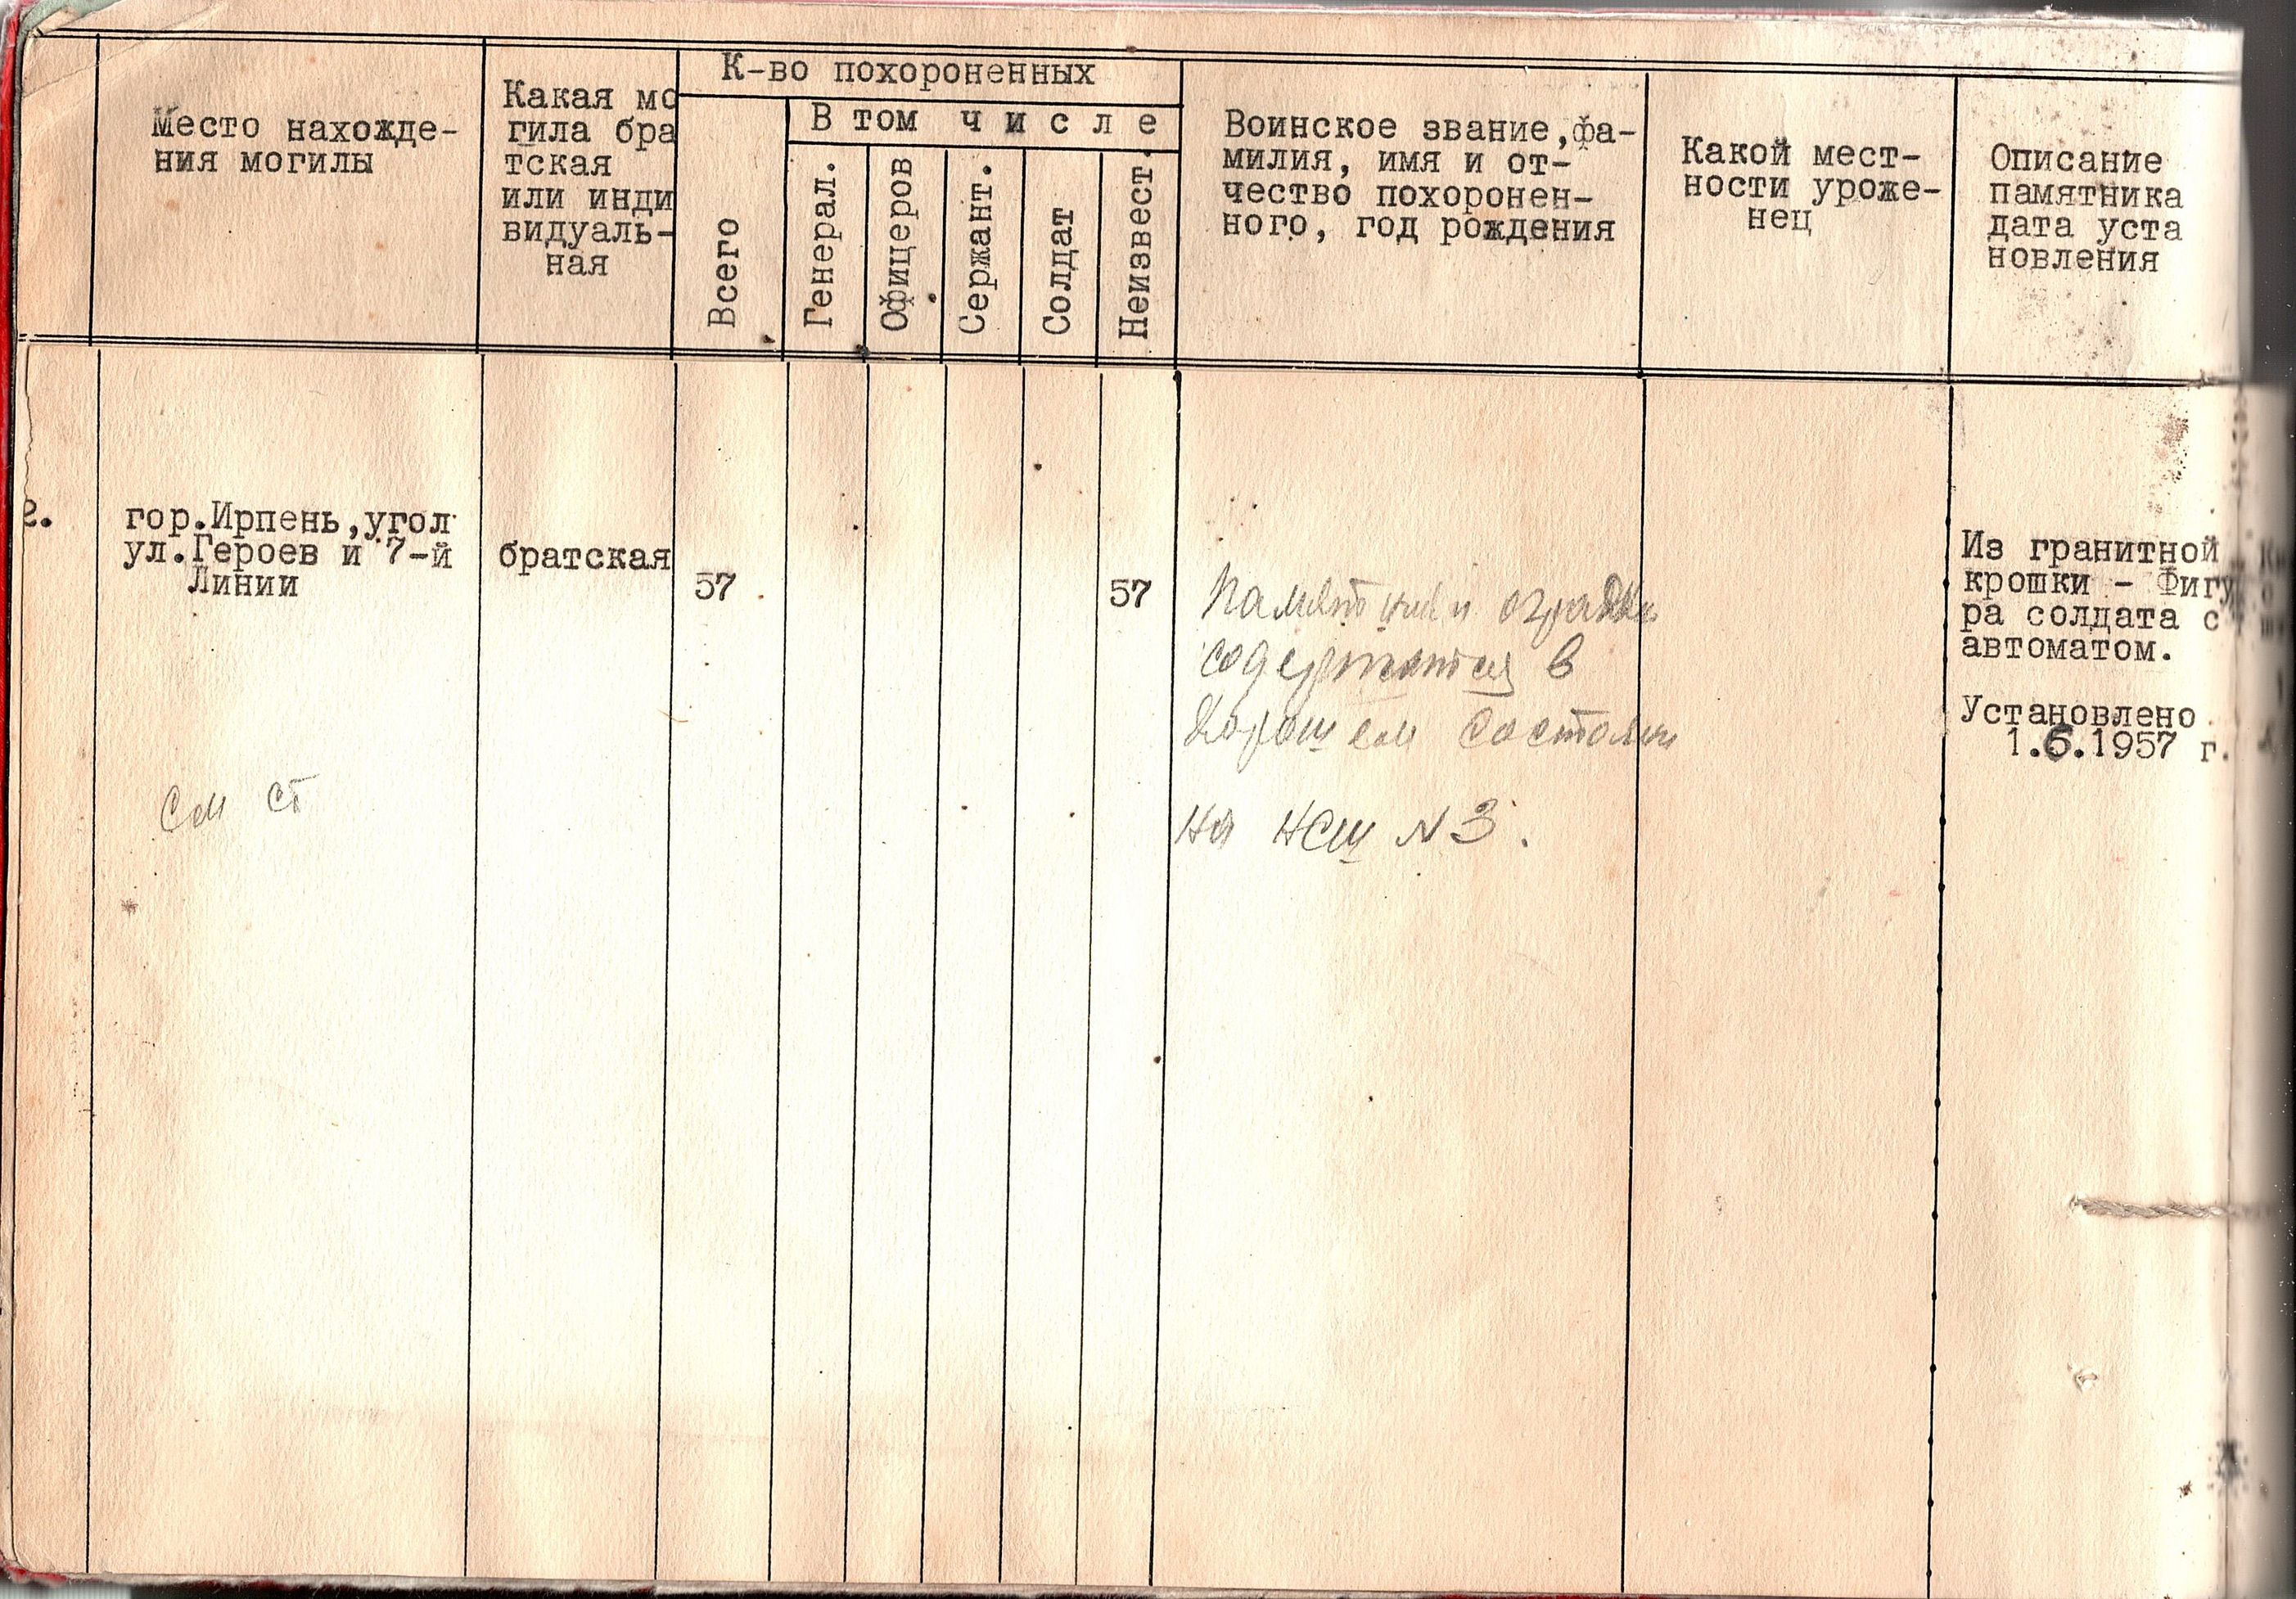 Место нахожде-
ния могилы
Какая мо
гила бра
тская
или инди
видуаль-
ная
К-во похороненных
Всего
В том числе
Генерал.
Офицеров
Сержант.
Солдат
Неизвест.
Воинское звание,фа-
милия, имя и от-
чество похоронен-
ного, год рождения
Какой мест-
ности уроже-
нец
Описание
памятника
дата уста
новления
2.
гор.Ирпень,угол
ул.Героев и 7-й
Линии
братская
57
57
Памятник и оградка
содержатся в
хорошем состоянии
на №3.
См ст
Из гранитной
крошки - Фигу
ра солдата с
автоматом.
Установлено
1.6.1957 г.